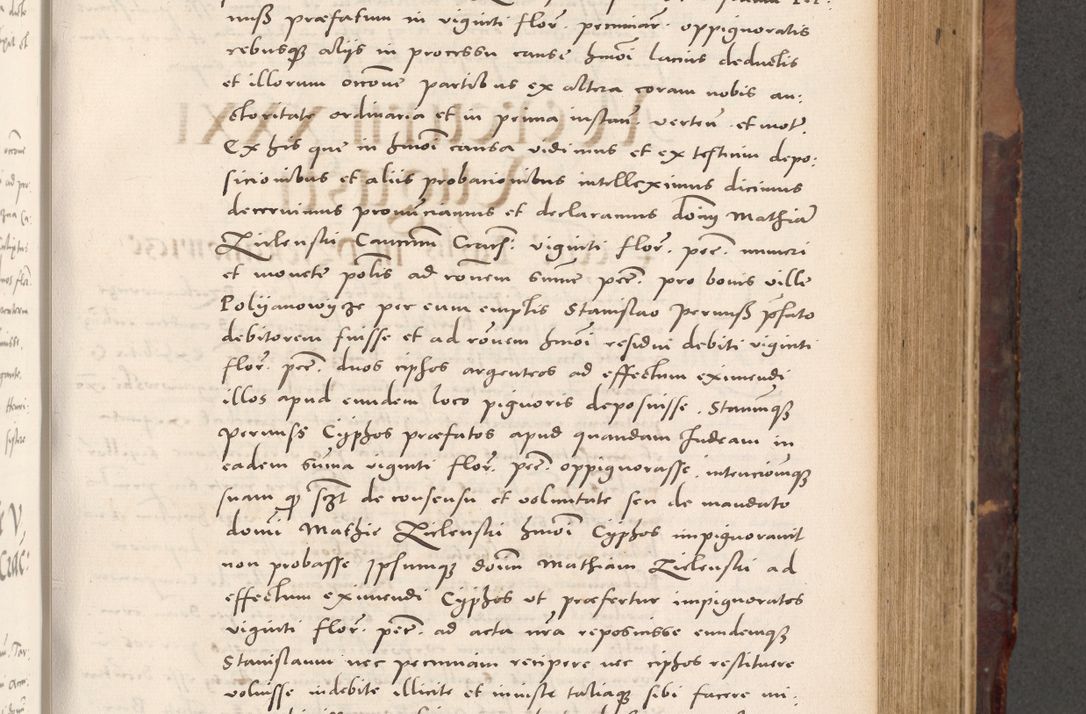 nusz præfatum in viginti flor. pecuniar. oppignoratis
rebusque alijs in processu cause hmoi lacius deductis
et illorum occone partibus ex altera coram nobis au:
ctoritate ordinaria et in prima instan. verten. et mot.
Ex his que in hmoi causa vidimus et ex testium depo:
sicionibus et aliis probacionibus intelleximus dicimus
decernimus pronunciamus et declaramus donū Mathiā
Zielenski Canonm Cracn. viginti flor. pec. numeri
et monete polis ad ronem summe pec. pro bonis ville
Polyanowycze per eum emptis Stanislao Pernusz pfato
debitorem fuisse et ad ronem hmoi residui debiti viginti
flor. pec. duos ciphos argenteos ad effectum eximendi
illos apud eundem loco pignoris deposuisse. Stanmque
Pernuss Cyphos præfatos apud quandam Judeam in
eadem suma viginti flor. pec. oppignorasse, intencionmque
suam qd sczt de consensu et voluntate seu de mandato
domi Mathie Zielenski hmoi Cyphos impignoravit
non probasse Ipsumque donm Mathiam Zielenski ad
effectum eximendi Cyphos ut præfertur impignoratos
viginti flor. pec. ad acta nra reposuisse eundemque
Stanislaum nec pecuniam recipere nec ciphos restituere
voluisse indebite illicite et iniuste taliaque sibi facere mi: